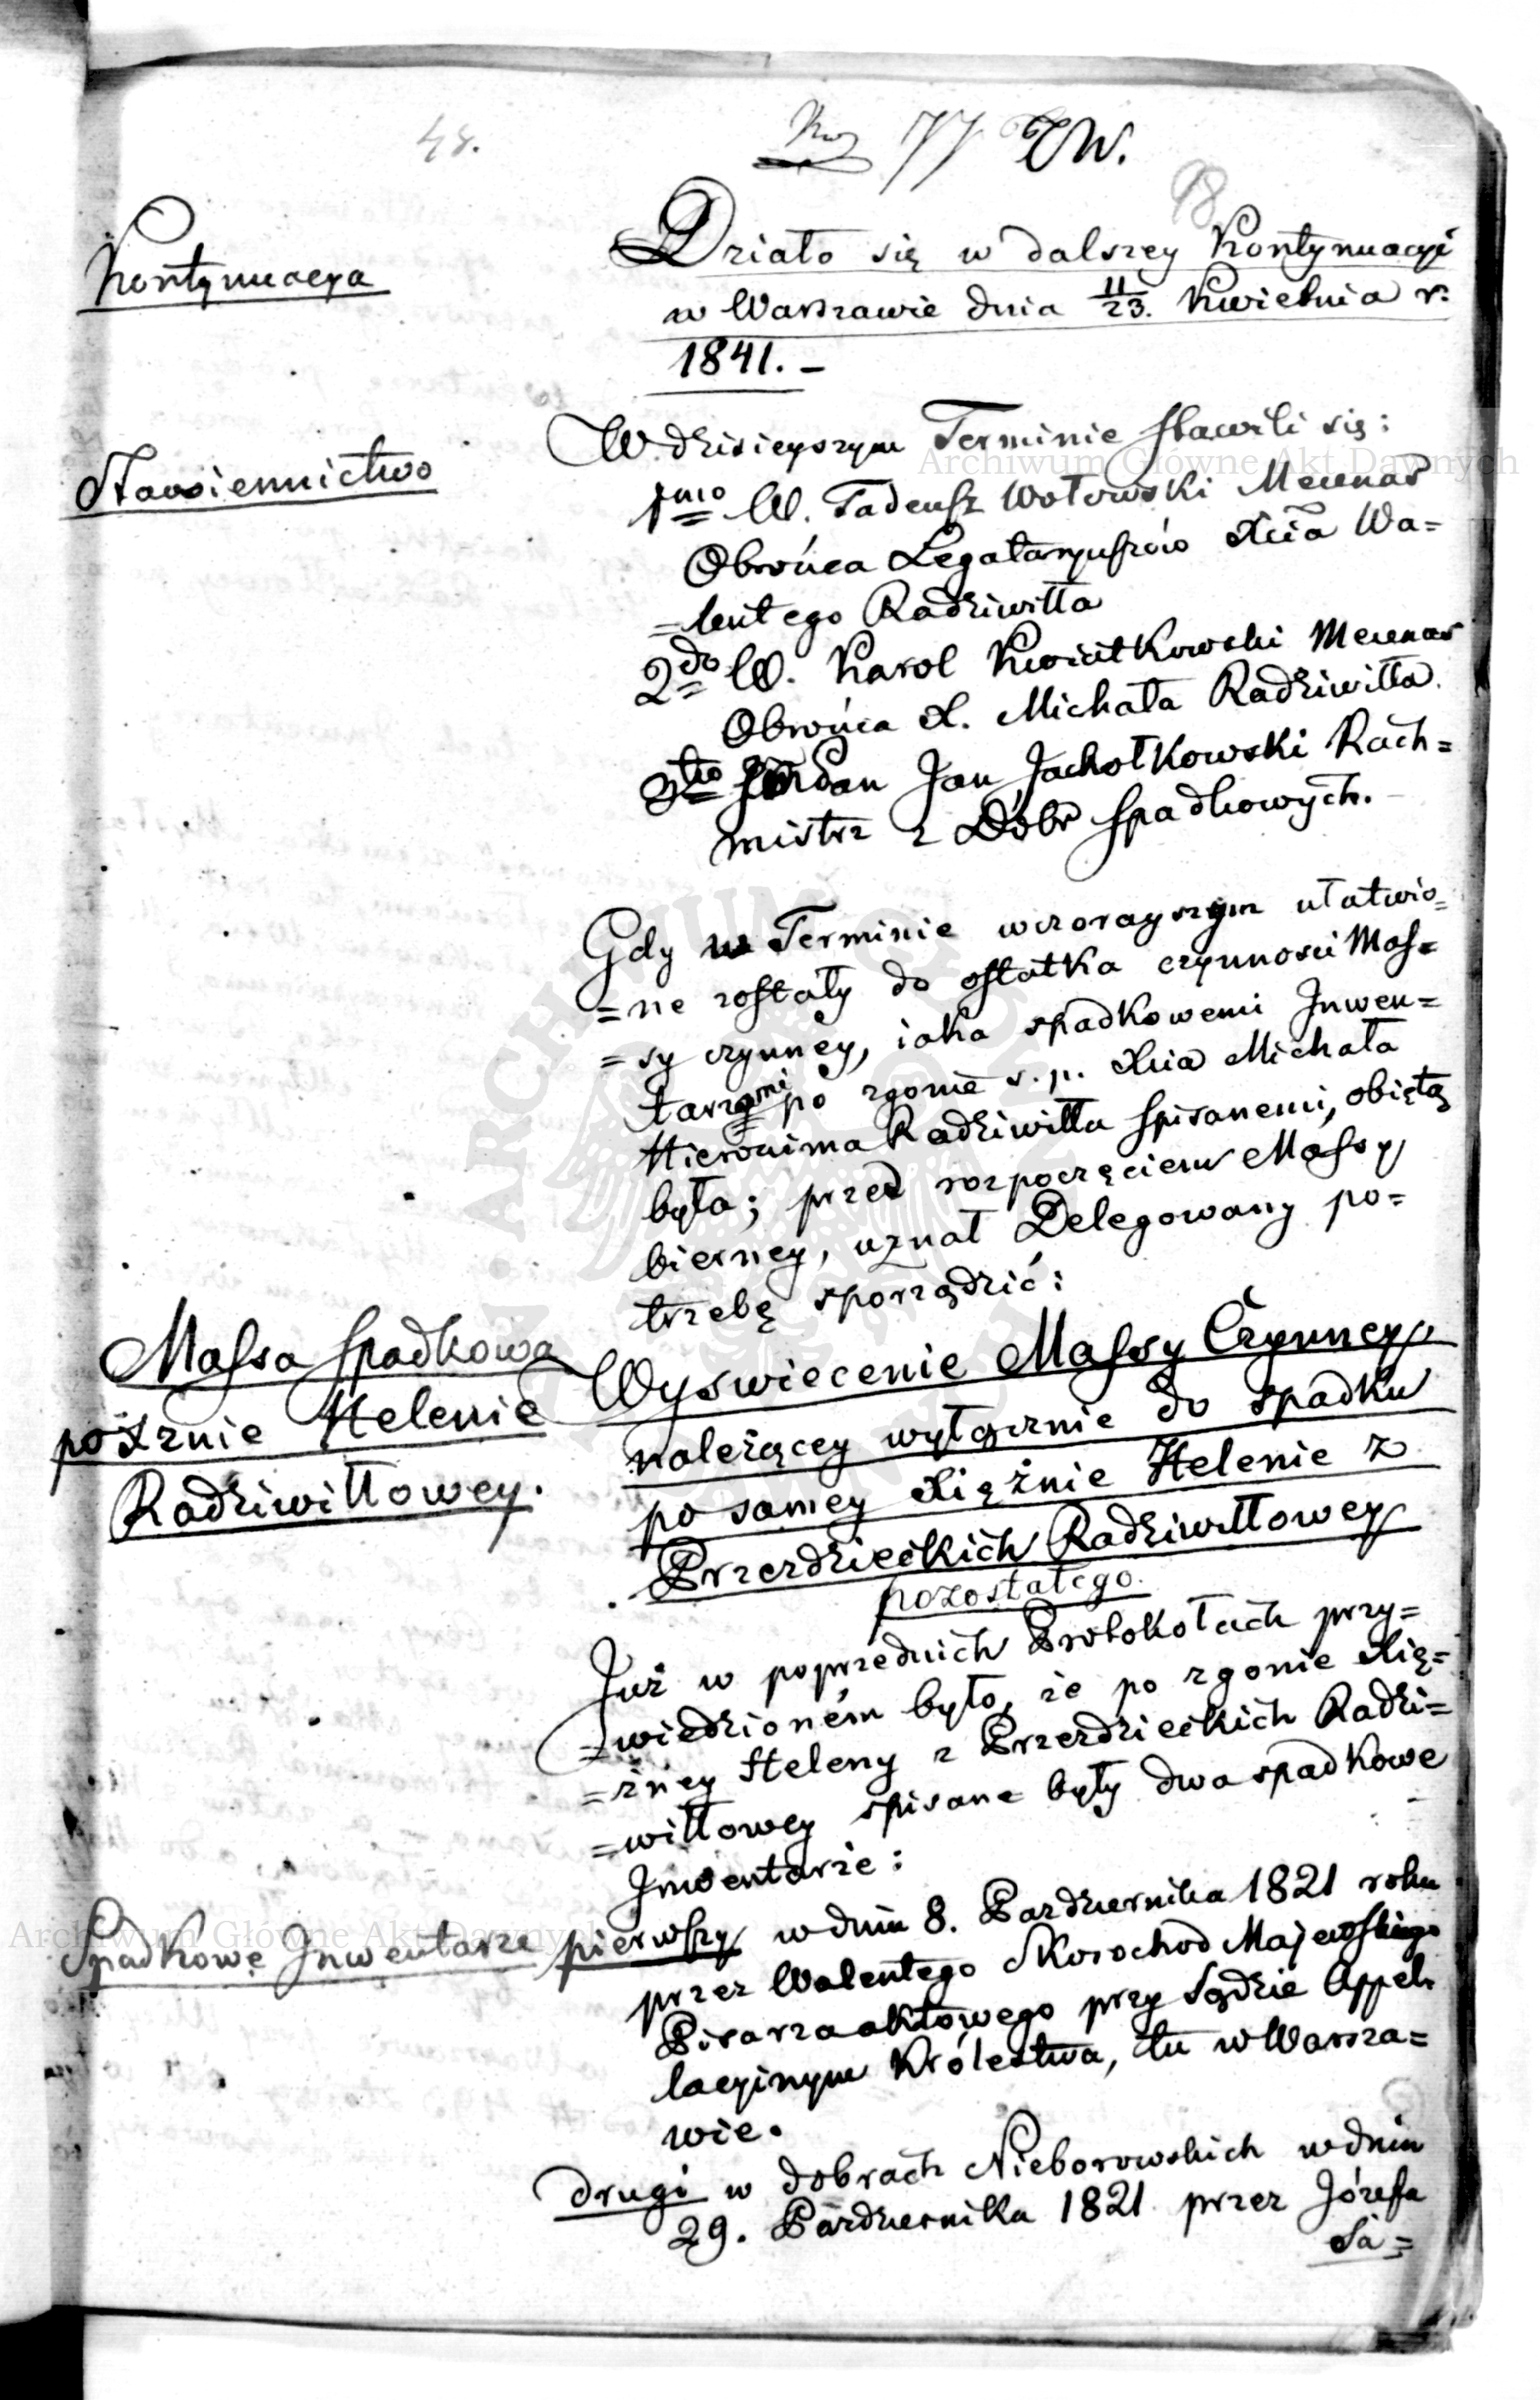 48.
77 TW.
98
Kontynuacya
Działo się w dalszey Kontynuacyi
w Warszawie dnia 11/23. Kwietnia r.
1841. –
Stawiennictwo
W dzisieyszym Terminie stawili się:
1mo W. Tadeusz Wołowski Mecenas
Obrońca Legataryuszów Xcia Wa=
=lentego Radziwiłła
2do W. Karol Kwiatkowski Mecenas
Obrońca X. Michała Radziwiłła.
3tio Pan Jan Jachołkowski Rach=
mistrz z Dóbr Spadkowych. –
Gdy w Terminie wczorayszym ułatwio=
=ne zostały do ostatka czynności Mas=
=sy czynney, iaka spadkowemi Inwen=
tarzami po zgonie ś. p. Xcia Michała
Hieronima Radziwiłła spisanemi, obiętą
była; przed rozpoczęciem Massy
bierney, uznał Delegowany po=
trzebę sporządzić:
Massa Spadkowa
po Xznie Helenie
Radziwiłłowey.
Wyswiecenie Massy Czynney
należącey wyłącznie do spadku
po samey Xiężnie Helenie z
Przezdzieckich Radziwiłłowey
pozostałego.
Już w poprzednich Protokołach przy=
=wiedzioném było, że po zgonie Xię=
=żney Heleny z Przezdzieckich Radzi=
=wiłłowey spisane były dwa spadkowe
Inwentarze:
Spadkowe Inwentarze
pierwszy w dniu 8. Pazdziernika 1821 roku
przez Walentego Skorochod Majewskiego
Pisarza aktowego przy Sądzie Appel=
lacyinym Królestwa, tu w Warsza=
wie.
drugi w dobrach Nieborowskich w dniu
29. Pazdziernika 1821 przez Józefa
Sa=
Archiwum Główne Akt Dawnych
Archiwum Główne Akt Dawnych
ARCHIWUM GŁÓWNE AKT DAWNYCH